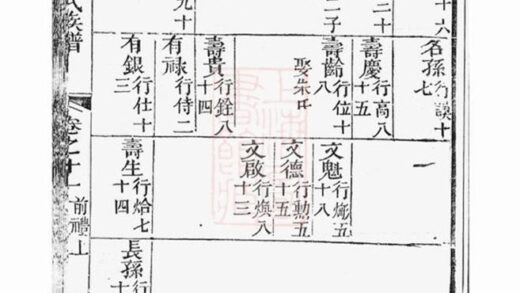 十六
二十
二子
九十
名孫行謨十七
壽慶行高八十五
壽齡行位十八
娶朱氏
壽貴行銓八十四
有祿行侍二
有銀行仕十三
文魁行㷟五十八
文德行勳五十五
文啟行煥八十三
壽生行烚七十四
長孫行十
氏族譜
卷之十一前禮上